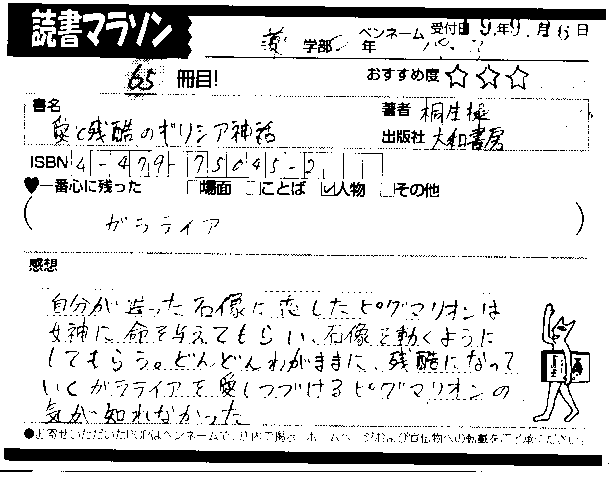 読書マラソン
受付日 '9年9月16日
薬 学部 年 ペンネーム
65 冊目! おすすめ度 ☆☆☆
書名 愛と残酷のギリシア神話
著者 桐生操
出版社 大和書房
ISBN 4-479-75045-2
♥一番心に残った □場面 □ことば ☑人物 □その他
( ガラテイア )
感想
自分が造った石像に恋したピグマリオンは
女神に命を与えてもらい、石像を動くように
してもらう。どんどんわがままに、残酷になって
いくガラテイアを愛しつづけるピグマリオンの
気が知れなかった